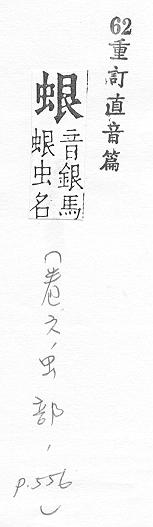 62重訂直音篇
䖐
音銀馬
䖐虫名
(卷六虫部,p.556)